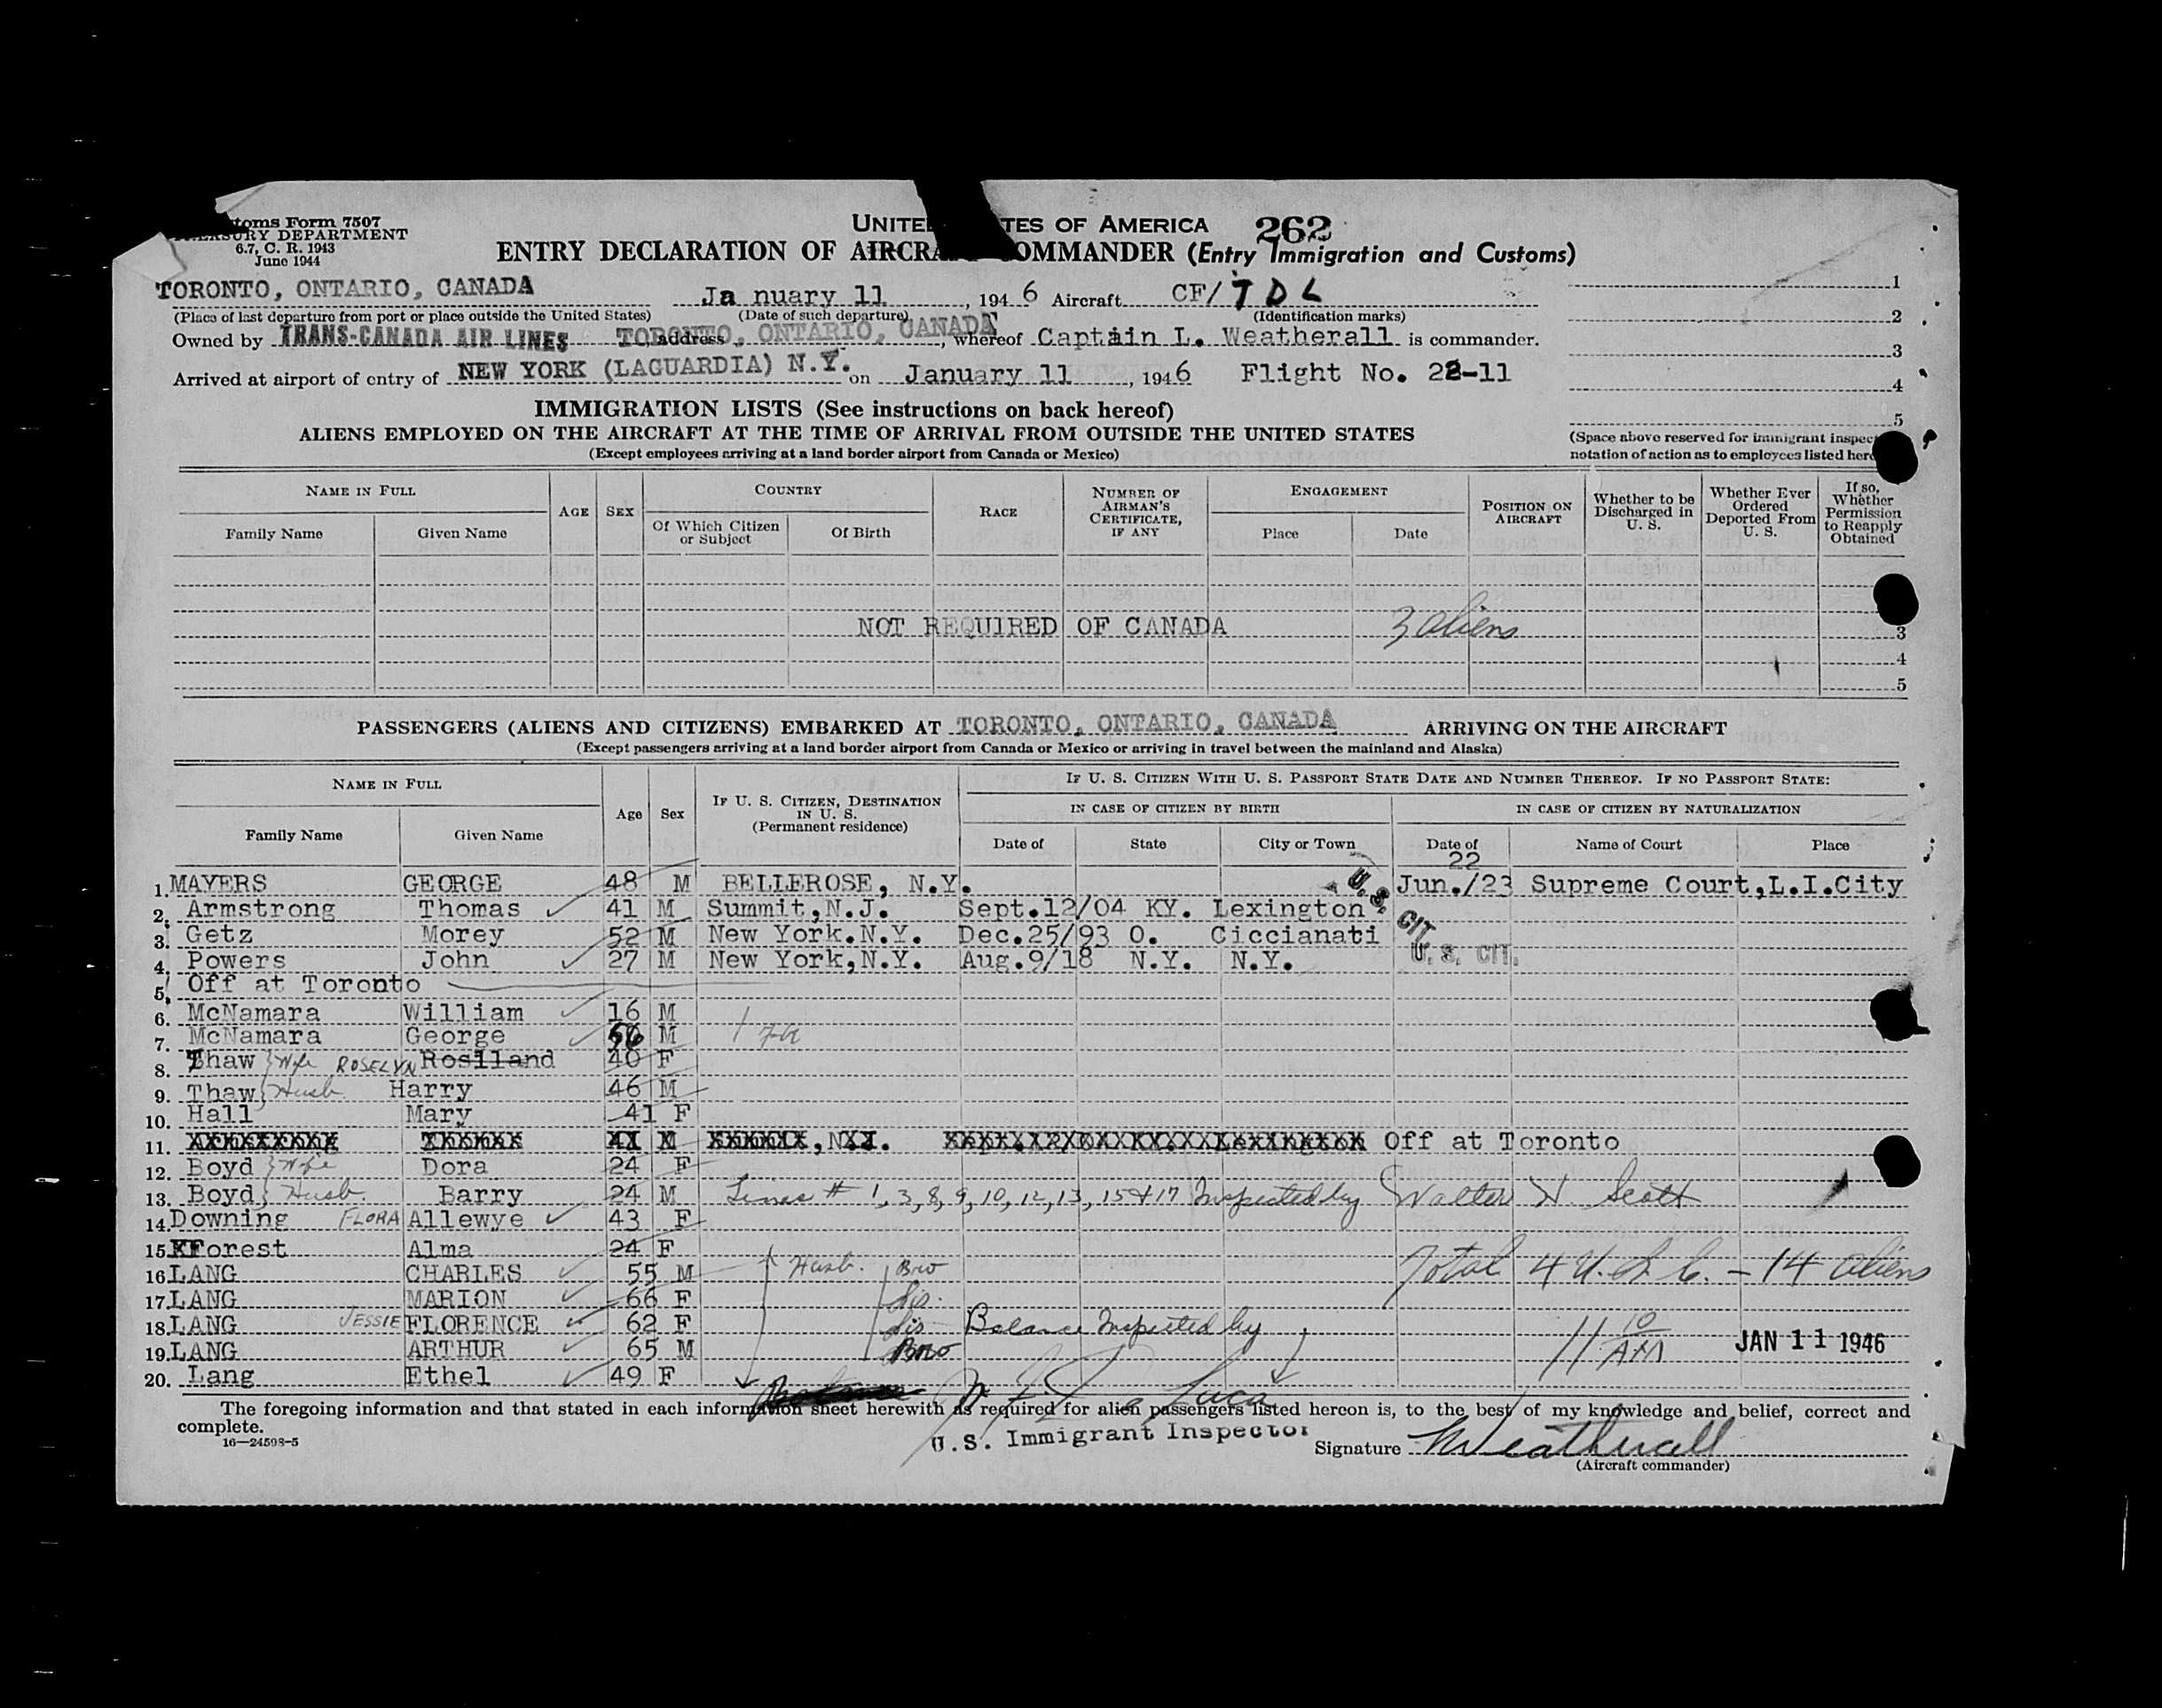 toms Form 7507
URY DEPARTMENT
6.7, C. R. 1943
June 1944
UNITE TES OF AMERICA 262
ENTRY DECLARATION OF AIRCRA OMMANDER (Entry Immigration and Customs)
TORONTO, ONTARIO, CANADA Ja nuary 11, 1946 Aircraft CF/TDL 1
(Place of last departure from port or place outside the United States) (Date of such departure) (Identification marks) 2
Owned by TRANS-CANADA AIR LINES address TORONTO, ONTARIO, CANADA, whereof Captain L. Weatherall is commander. 3
Arrived at airport of entry of NEW YORK (LAGUARDIA) N.Y. on January 11, 1946 Flight No. 22-11 4
5
IMMIGRATION LISTS (See instructions on back hereof)
ALIENS EMPLOYED ON THE AIRCRAFT AT THE TIME OF ARRIVAL FROM OUTSIDE THE UNITED STATES
(Except employees arriving at a land border airport from Canada or Mexico)
(Space above reserved for immigrant inspec
notation of action as to employees listed her
NAME IN FULL
Family Name Given Name
AGE SEX
COUNTRY
Of Which Citizen or Subject Of Birth
RACE
NUMBER OF AIRMAN'S CERTIFICATE, IF ANY
ENGAGEMENT
Place Date
POSITION ON AIRCRAFT
Whether to be Discharged in U. S.
Whether Ever Ordered Deported From U. S.
If so, Whether Permission to Reapply Obtained
NOT REQUIRED OF CANADA 3 aliens 3
4
5
PASSENGERS (ALIENS AND CITIZENS) EMBARKED AT TORONTO, ONTARIO, CANADA ARRIVING ON THE AIRCRAFT
(Except passengers arriving at a land border airport from Canada or Mexico or arriving in travel between the mainland and Alaska)
NAME IN FULL
Family Name Given Name
Age Sex
IF U. S. CITIZEN, DESTINATION IN U. S. (Permanent residence)
IF U. S. CITIZEN WITH U. S. PASSPORT STATE DATE AND NUMBER THEREOF. IF NO PASSPORT STATE:
IN CASE OF CITIZEN BY BIRTH IN CASE OF CITIZEN BY NATURALIZATION
Date of State City or Town Date of Name of Court Place
22
1. MAYERS GEORGE 48 M BELLEROSE, N.Y. U.S. CIT. Jun./23 Supreme Court, L.I.City
2. Armstrong Thomas 41 M Summit, N.J. Sept.12/04 KY. Lexington
3. Getz Morey 52 M New York.N.Y. Dec.25/93 O. Ciccianati
4. Powers John 27 M New York,N.Y. Aug.9/18 N.Y. N.Y. U. S. CIT.
5. Off at Toronto
6. McNamara William 16 M
7. McNamara George 56 M
8. Thaw Wife ROSELYN Roslland 40 F
9. Thaw Husb. Harry 46 M
10. Hall Mary 41 F
11. Off at Toronto
12. Boyd Wife Dora 24 F
13. Boyd Husb. Barry 24 M Lines # 1, 3, 8, 9, 10, 12, 13, 15 & 17 Inspected by Walter H Scott
14. Downing FLORA Allewye 43 F
15. Forest Alma 24 F
16 LANG CHARLES 55 M Husb. Bro Total 4 U. S. C. - 14 aliens
17. LANG MARION 66 F Sis.
18. LANG JESSIE FLORENCE 62 F Sis Balance Inspected by
19. LANG ARTHUR 65 M Bro 11 10 AM JAN 11 1946
20. Lang Ethel 49 F
The foregoing information and that stated in each information sheet herewith as required for alien passengers listed hereon is, to the best of my knowledge and belief, correct and
complete.
16—24508-5
U.S. Immigrant Inspector
Signature Weatherall
(Aircraft commander)